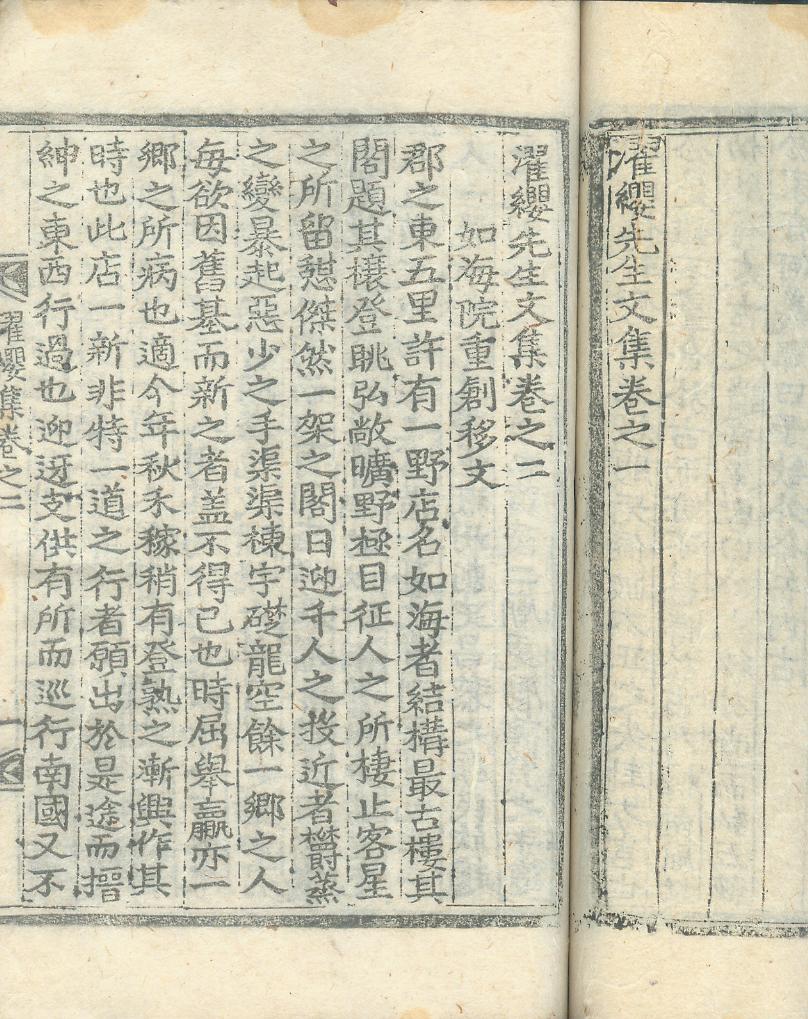 濯纓先生文集卷之一
濯纓先生文集卷之二
如海院重創移文
郡之東五里許有一野店名如海者結構最古樓其
閣題其榱登眺弘敞曠野極目征人之所棲止客星
之所留憇傑然一架之閣日迎千人之投近者欝蒸
之變暴起惡少之手渠渠棟宇礎龍空餘一鄉之人
每欲因舊基而新之者盖不得已也時屈擧贏亦一
鄉之所病也適今年秋禾稼稍有登熟之漸興作其
時也此店一新非特一道之行者願出於是途而搢
紳之東西行過也迎迓支供有所而巡行南國又不
濯纓集卷之二
一